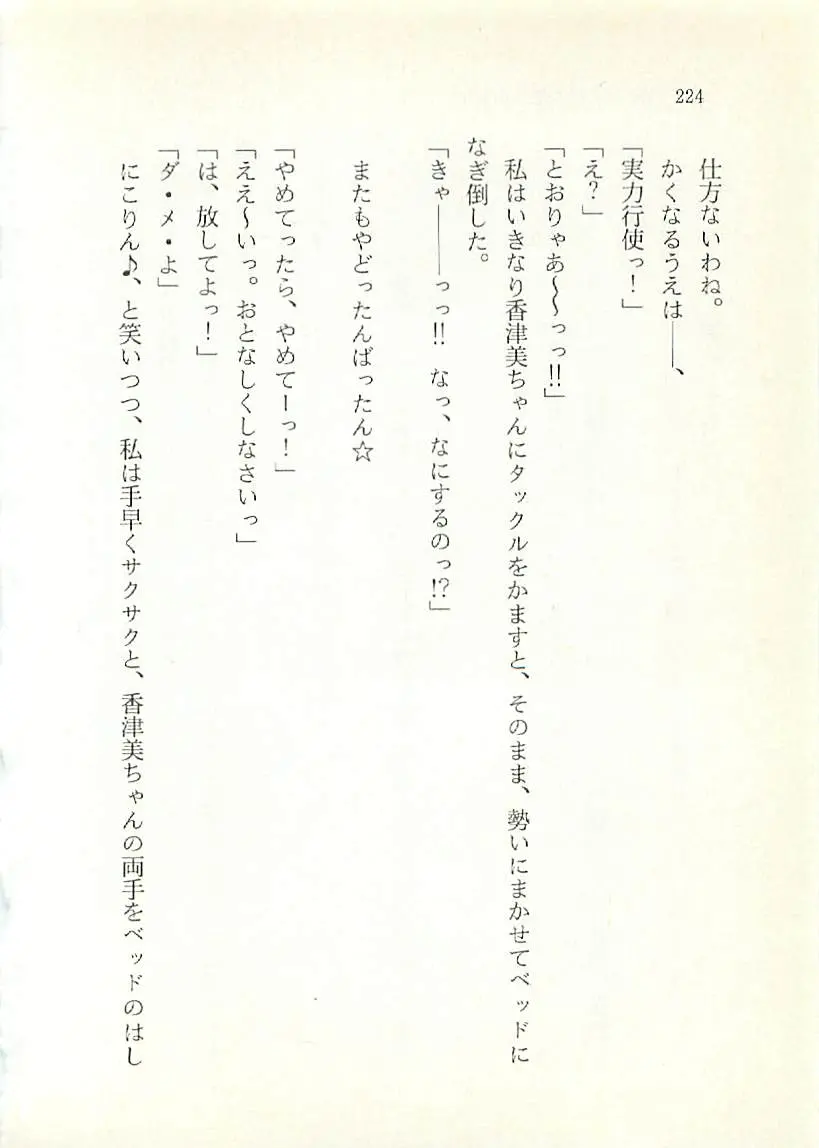 224
仕方ないわね。
かくなるうえは――、
「実力行使っ！」
「え？」
「とおりゃあ～～っっ!!」
私はいきなり香津美ちゃんにタックルをかますと、そのまま、勢いにまかせてベッドに
なぎ倒した。
「きゃ――っっ!!　なっ、なにするのっ!?」
またもやどったんばったん☆
「やめてったら、やめてーっ！」
「ええ～いっ。おとなしくしなさいっ」
「は、放してよっ！」
「ダ・メ・よ」
にこりん♪、と笑いつつ、私は手早くサクサクと、香津美ちゃんの両手をベッドのはし